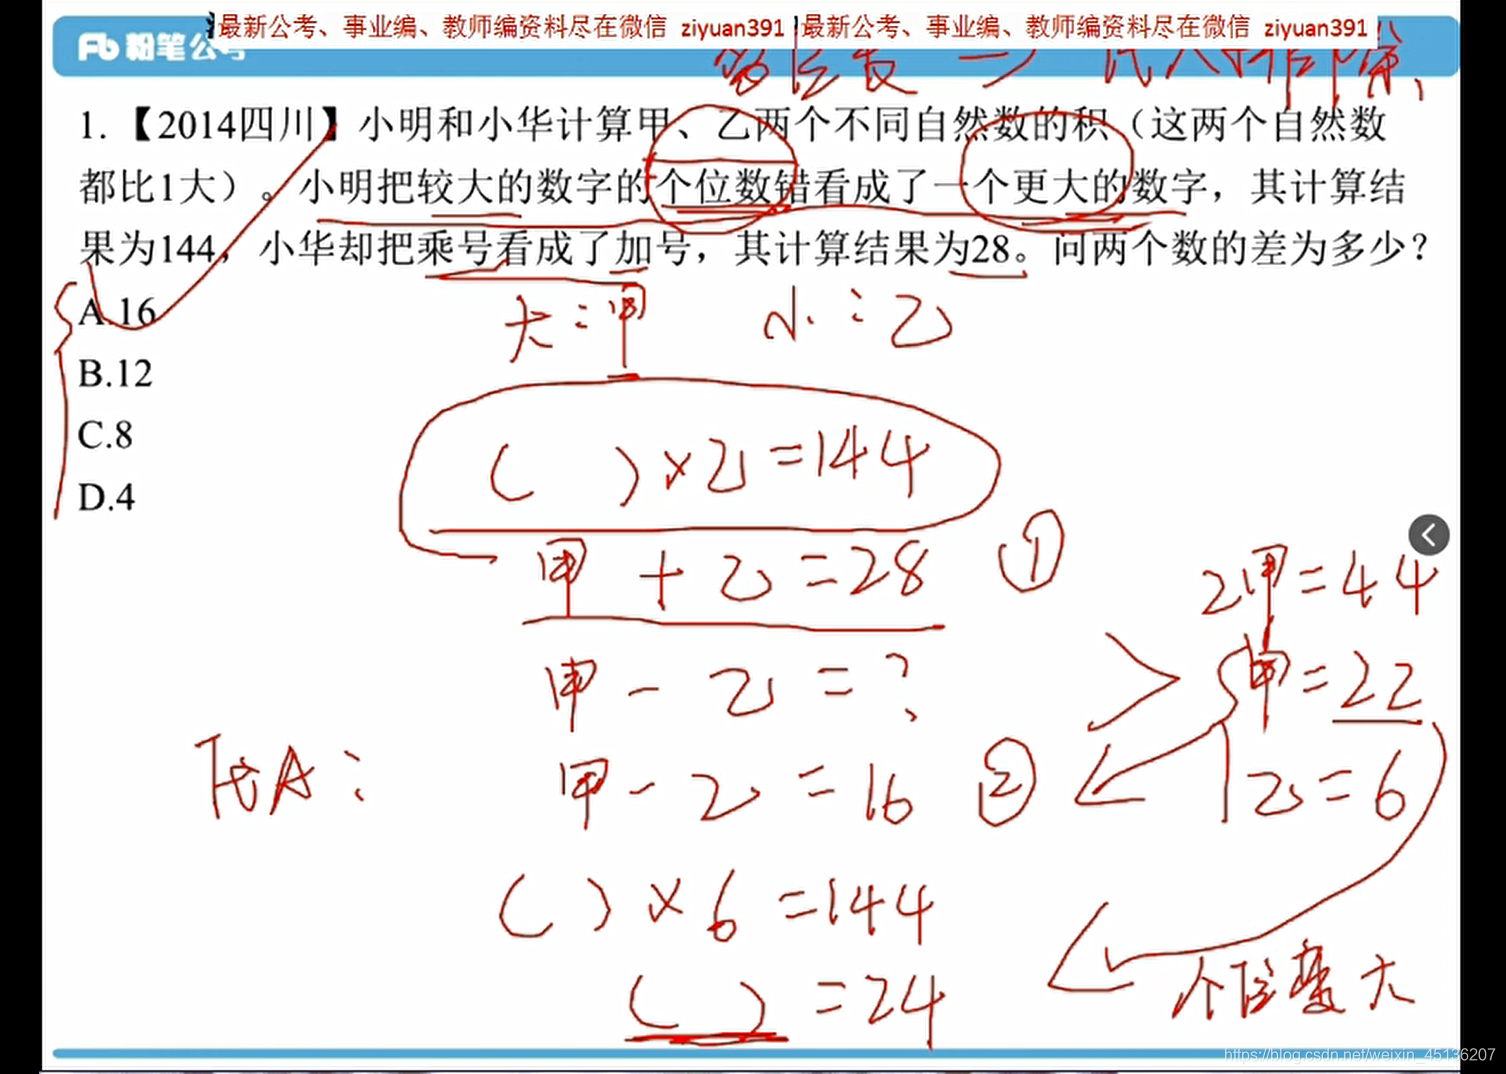 最新公考、事业编、教师编资料尽在微信 ziyuan391 最新公考、事业编、教师编资料尽在微信 ziyuan391
粉笔公考
1.【2014四川】小明和小华计算甲、乙两个不同自然数的积（这两个自然数
都比1大）。小明把较大的数字的个位数错看成了一个更大的数字，其计算结
果为144，小华却把乘号看成了加号，其计算结果为28。问两个数的差为多少？
A.16
B.12
C.8
D.4
大：甲 小：乙
( )×乙=144
甲+乙=28 ①
甲-乙=?
2甲=44
甲=22
代A：
甲-乙=16 ②
乙=6
( )×6=144
( )=24
个位变大
https://blog.csdn.net/weixin_45136207